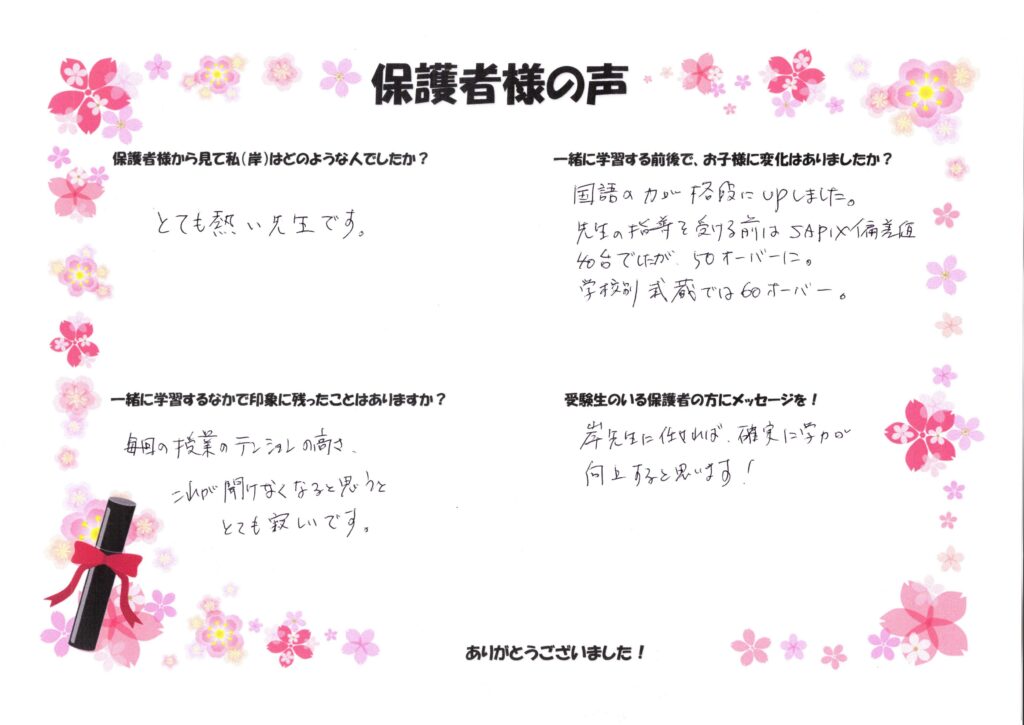 保護者様の声
保護者様から見て私(岸)はどのような人でしたか?
とても熱い先生です。
一緒に学習する前後で、お子様に変化はありましたか?
国語の力が格段にUPしました。
先生の指導を受ける前はSAPIX偏差値
40台でしたが、50オーバーに。
学校別 武蔵では60オーバー。
一緒に学習するなかで印象に残ったことはありますか?
毎回の授業のテンションの高さ、
これが聞けなくなると思うと
とても寂しいです。
受験生のいる保護者の方にメッセージを!
岸先生に任せれば、確実に学力が
向上すると思います!
ありがとうございました!